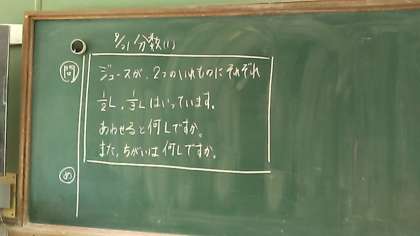 9/21 分数(1)
問
ジュースが、2つのいれものにそれぞれ
1/2L、1/3Lはいっています。
あわせると何Lですか。
また、ちがいは何Lですか。
め